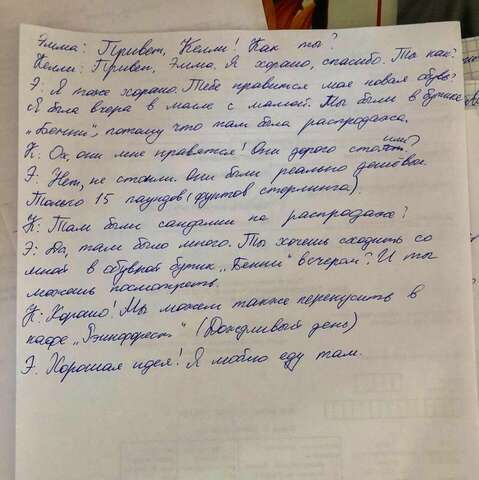 Эмма: Привет, Келли! Как ты?
Келли: Привет, Эмма. Я хорошо, спасибо. Ты как?
Э: Я тоже хорошо. Тебе нравится моя новая обувь?
Я была вчера в молле с мамой. Мы были в бутике
„Бенни", потому что там была распродажа.
К: Ох, они мне нравятся! Они дорого стоили?
Э: Нет, не стоили. Они были реально дешёвые.
Только 15 паундов (фунтов стерлинга).
К: Там были сандалии на распродаже?
Э: Да, там было много. Ты хочешь сходить со
мной в обувной бутик „Бенни" вечером? И ты
можешь посмотреть.
К: Хорошо! Мы можем также перекусить в
кафе „Рэинфорест" (Дождливый день)
Э: Хорошая идея! Я люблю еду там.